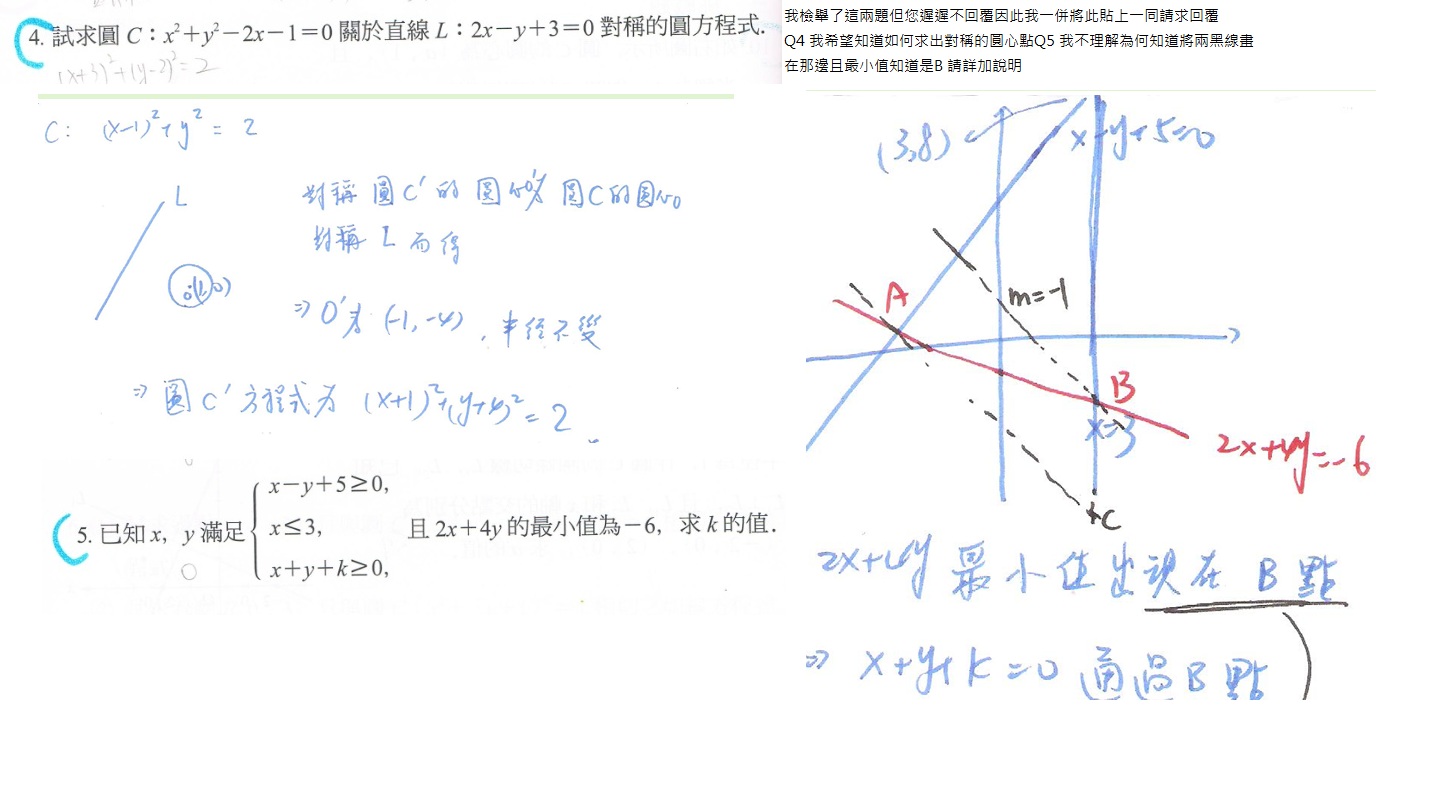 4. 試求圓 C：x²+y²−2x−1=0 關於直線 L：2x−y+3=0 對稱的圓方程式.
(x+3)²+(y-2)²=2
C: (x-1)²+y² = 2
L
對稱圓C'的圓心O'為圓C的圓心O
對稱 L 而得
⇒ O'為 (-1,-4)，半徑不變
⇒ 圓C'方程式為 (x+1)²+(y+4)²=2
5. 已知 x，y 滿足
x−y+5≥0,
x≤3,
x+y+k≥0,
且 2x+4y 的最小值為−6，求 k 的值.
我檢舉了這兩題但您遲遲不回覆因此我一併將此貼上一同請求回覆
Q4 我希望知道如何求出對稱的圓心點Q5 我不理解為何知道將兩黑線畫
在那邊且最小值知道是B 請詳加說明
(3,8)
x-y+5=0
A
m=-1
B
x=3
2x+4y=-6
C
2x+4y 最小值出現在 B 點
⇒ x+y+k=0 通過B點